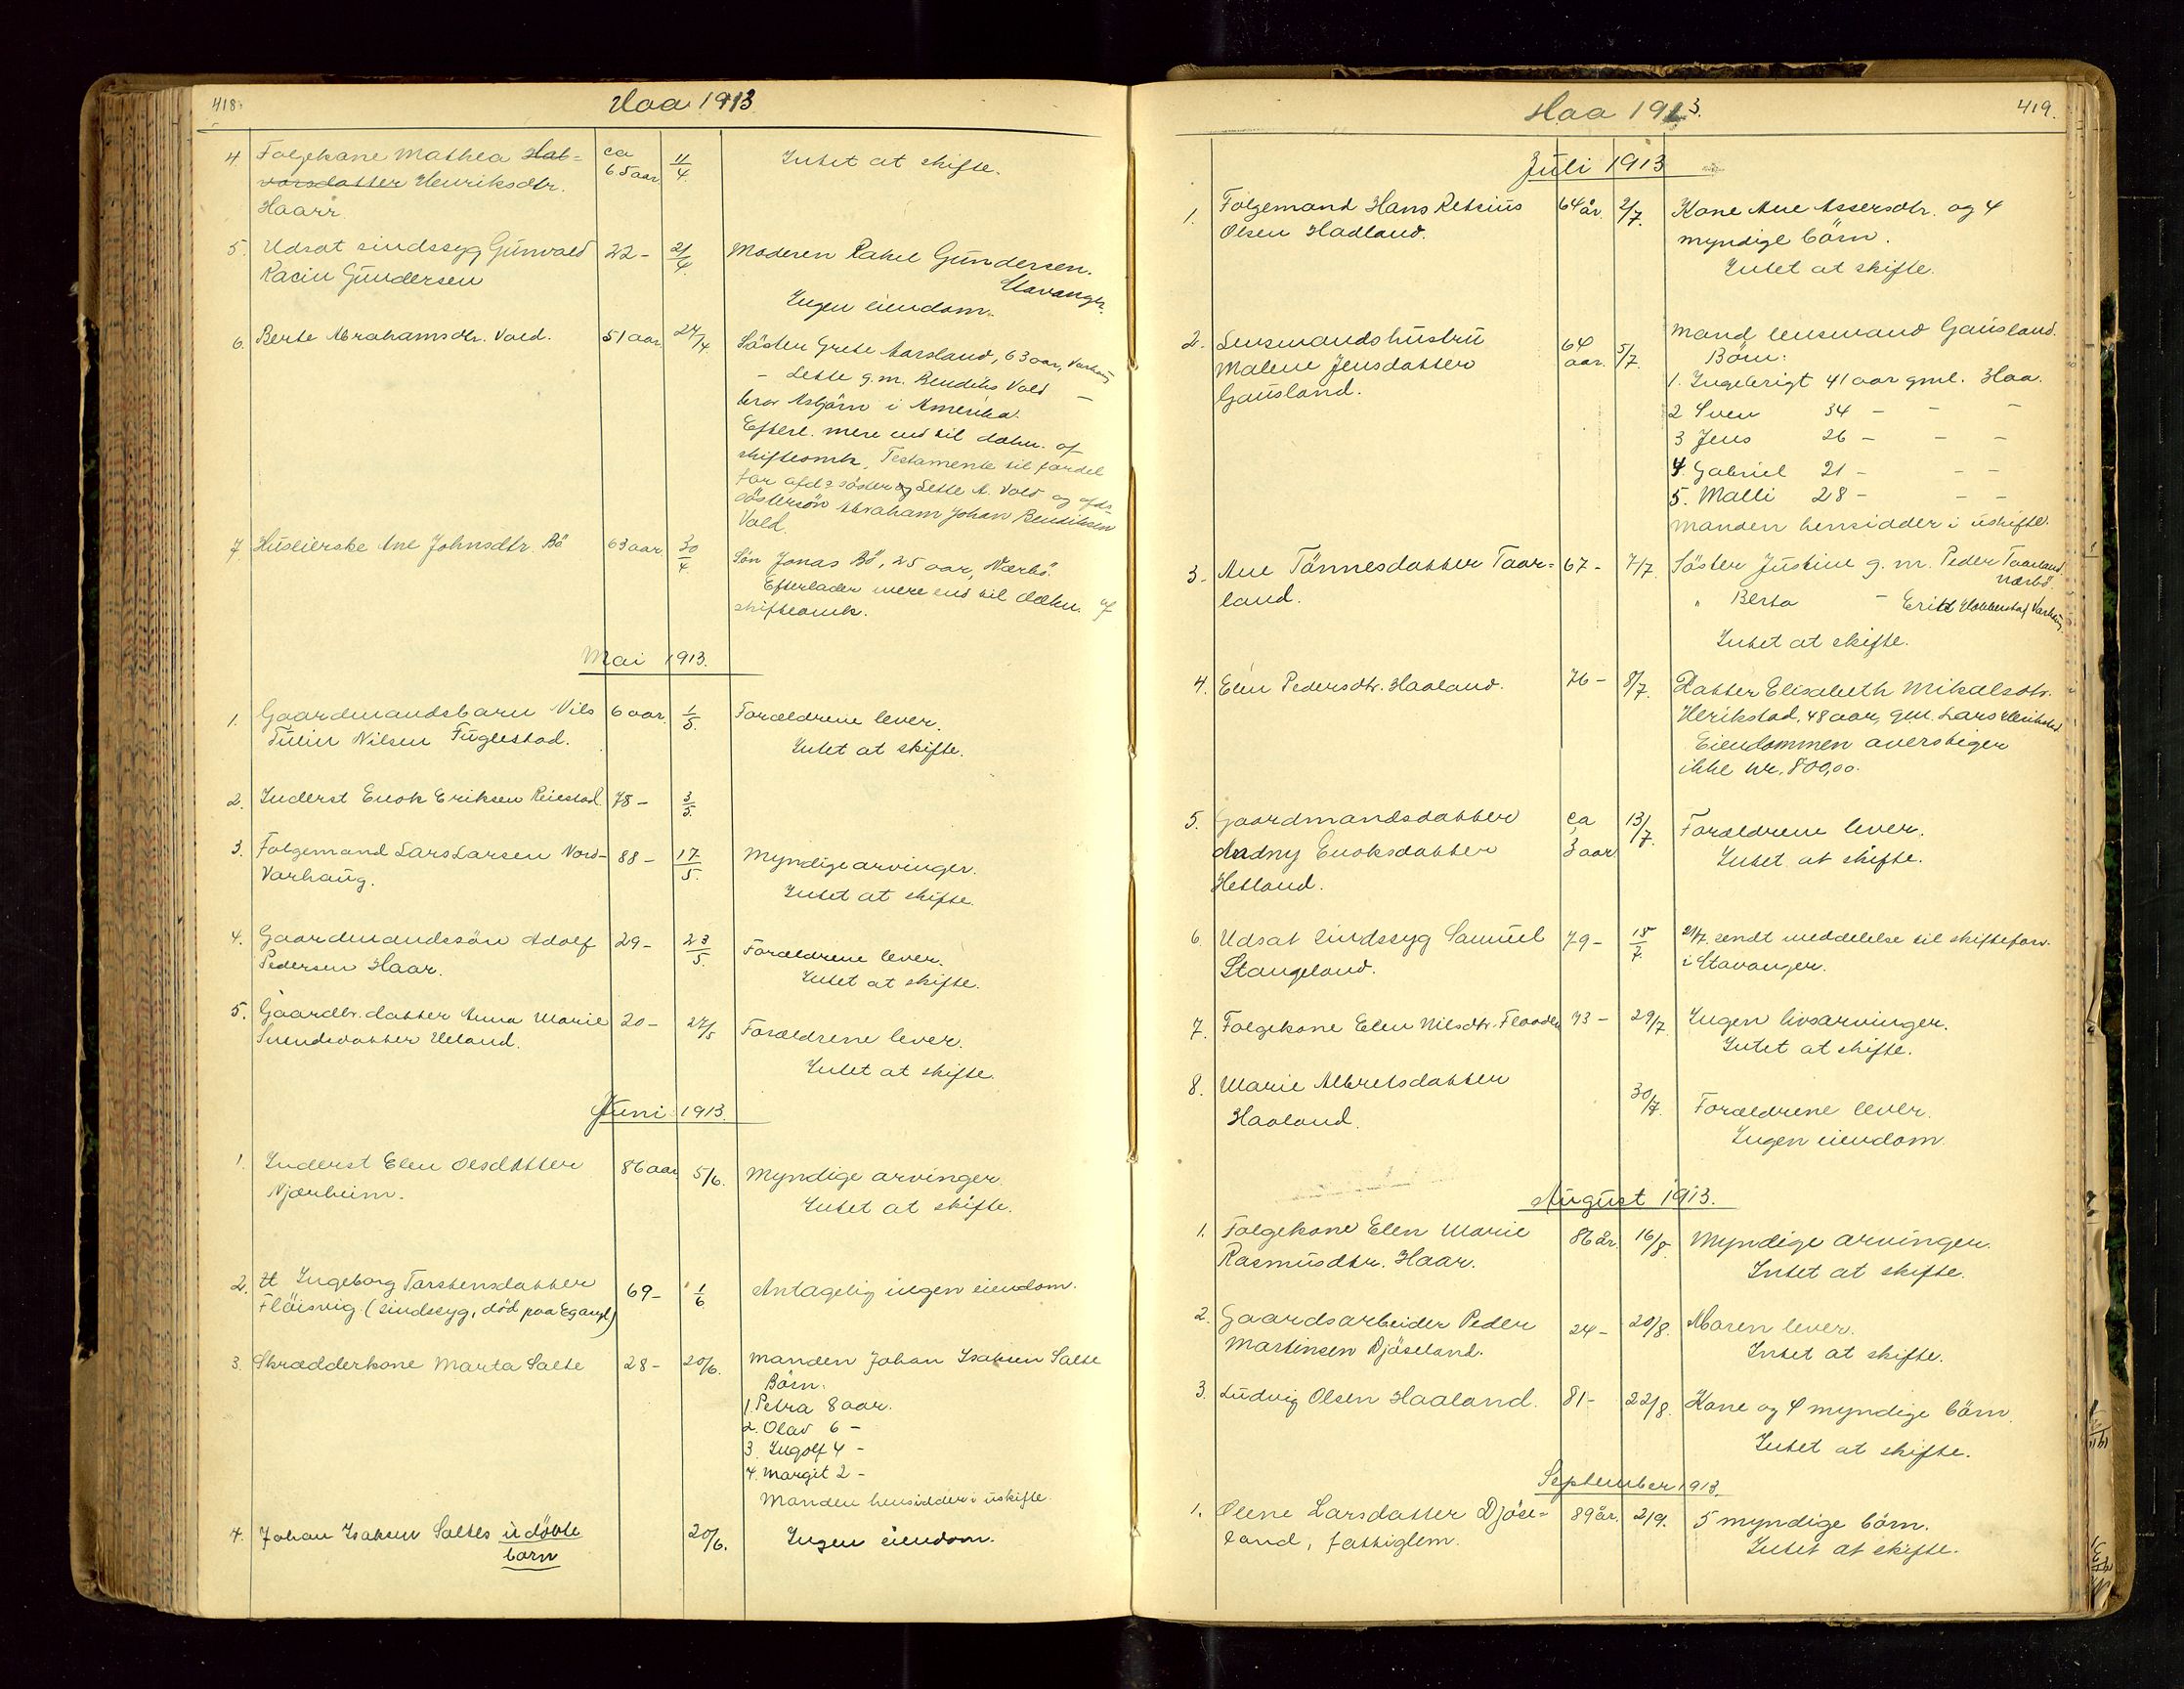 418.
Haa 1913
4 Folgekone Mathea Hal=
vorsdatter Henriksdtr.
Haarr.
ca
65 aar.
11/4.
Intet at skifte.
5. Udsat sindssyg Gunvald
Racin Gundersen
22 -
21/4.
Moderen Rakel Gundersen.
Stavanger.
Ingen eiendom.
6. Berte Abrahamsdtr. Vold.
51 aar.
24/4.
Söster Grete Aarsland, 63 aar, Varhaug
- Lette g. m. Bendiks Vold -
bror Asbjörn i Amerika.
Efterl. mere end til dækn. af
skifteomk. Testamente til fordel
for afd.s söster Lette A. Vold og afds
söstersön Abraham Johan Bendiksen
Vold.
7. Huseierske Ane Johnsdtr. Bö
63 aar
30/4.
Sön Jonas Bö, 25 aar, Nærbö.
Efterlader mere end til dækn. af
skifteomk.
Mai 1913.
1. Gaardmandsbarn Nils
Tulin Nilsen Fuglestad.
6 aar.
1/5.
Forældrene lever.
Intet at skifte.
2. Inderst Enok Eriksen Reiestad.
78 -
3/5.
3. Folgemand Lars Larsen Nord-
Varhaug.
88 -
17/5.
Myndige arvinger.
Intet at skifte.
4. Gaardmandssön Adolf
Pedersen Haar.
29 -
23/5.
Forældrene lever.
Intet at skifte.
5. Gaardbr. datter Anna Marie
Svendsdatter Ueland.
20 -
27/5
Forældrene lever.
Intet at skifte.
Juni 1913.
1. Inderst Elen Olsdatter
Njærheim.
86 aar
5/6.
Myndige arvinger.
Intet at skifte.
2. Ingeborg Torstensdatter
Flöisvig. (sindssyg, död paa Eg asyl)
69 -
1/6
Antagelig ingen eiendom.
3. Skrædderkone Marta Salte
28 -
20/6.
Manden Johan Isaksen Salte
Börn:
1. Petra 8 aar.
2. Olav 6 -
3. Ingolf 4 -
4. Margit 2 -
Manden hensidder i uskifte.
4. Johan Isaksen Saltes udöbte
barn
20/6.
Ingen eiendom.
Haa 1913.
419.
Juli 1913
1. Folgemand Hans Retsius
Olsen Hadland.
64 år.
2/7.
Kone Ane Assersdtr. og 4
myndige börn.
Intet at skifte.
2. Lensmandshustru
Malene Jensdatter
Gausland.
64
aar.
5/7.
Mand lensmand Gausland.
Börn:
1. Ingebrigt 41 aar gml. Haa.
2 Sven 34 - - -
3 Jens 26 - - -
4. Gabriel 21 - - -
5. Malli 28 - - -
Manden hensidder i uskifte.
3. Ane Tönnesdatter Taar=
land.
67 -
7/7.
Söster Justine g. m. Peder Taarland.
Nærbö
" Berta - Erik Varhaug.
Intet at skifte.
4. Elen Pedersdtr. Haaland.
76 -
8/7.
Datter Elisabeth Mikalsdtr.
Herikstad, 48 aar, gm. Lars Herikstad
Eiendommen overstiger
ikke kr. 800,00.
5. Gaardmandsdatter
Andny Enoksdatter
Hetland.
ca
3 aar
13/7.
Forældrene lever.
Intet at skifte.
6. Udsat sindssyg Samuel
Stangeland.
79 -
15/7.
21/7. sendt meddelelse til skifteforv.
i Stavanger.
7. Folgekone Elen Nilsdtr. Flaaden
73 -
29/7.
Ingen livsarvinger.
Intet at skifte.
8. Marie Albretsdatter
Haaland.
30/7.
Forældrene lever.
Ingen eiendom.
August 1913.
1. Folgekone Elen Marie
Rasmusdtr. Haar.
86 år.
16/8.
Myndige arvinger.
Intet at skifte.
2. Gaardsarbeider Peder
Martinsen Djöseland.
24 -
20/8.
Moren lever.
Intet at skifte.
3. Ludvig Olsen Haaland.
81 -
22/8.
Kone og 4 myndige börn.
Intet at skifte.
September 1913.
1. Olene Larsdatter Djöse=
land, fattiglem.
89 år.
2/9.
5 myndige börn.
Intet at skifte.